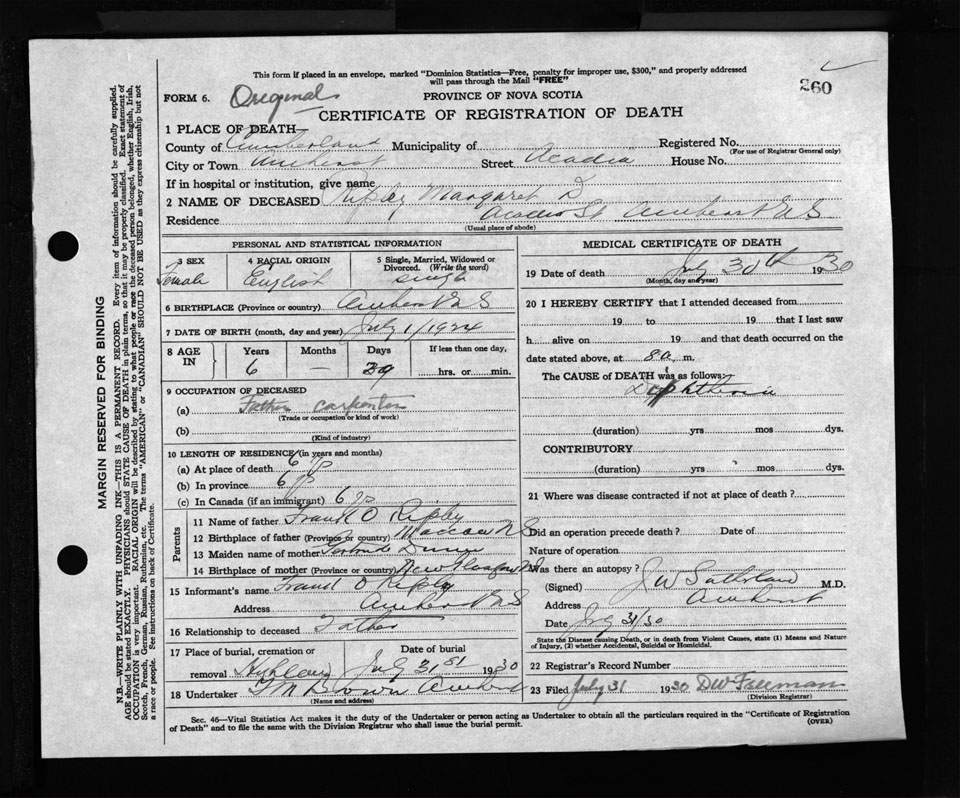 This form if placed in an envelope, marked "Dominion Statistics—Free, penalty for improper use, $300," and properly addressed
will pass through the Mail "FREE"
260
FORM 6. Original PROVINCE OF NOVA SCOTIA
CERTIFICATE OF REGISTRATION OF DEATH
1 PLACE OF DEATH
County of Cumberland Municipality of Registered No.
(For use of Registrar General only)
City or Town Amherst Street Acadia House No.
If in hospital or institution, give name
2 NAME OF DECEASED Ripley Margaret D
Residence Acadia St Amherst N S
(Usual place of abode)
PERSONAL AND STATISTICAL INFORMATION
3 SEX Female
4 RACIAL ORIGIN English
5 Single, Married, Widowed or
Divorced. (Write the word)
single
6 BIRTHPLACE (Province or country) Amherst N S
7 DATE OF BIRTH (month, day and year) July 1/1924
8 AGE IN Years Months Days If less than one day,
6 — 29 hrs. or min.
9 OCCUPATION OF DECEASED
(a) Father carpenter
(Trade or occupation or kind of work)
(b)
(Kind of industry)
10 LENGTH OF RESIDENCE (in years and months)
(a) At place of death 6
(b) In province 6
(c) In Canada (if an immigrant) 6
Parents
11 Name of father Frank O Ripley
12 Birthplace of father (Province or country) Maccan N S
13 Maiden name of mother Gertrude
14 Birthplace of mother (Province or country) New Glasgow N S
15 Informant's name Frank O Ripley
Address Amherst N S
16 Relationship to deceased Father
17 Place of burial, cremation or removal Highland
Date of burial July 31st 1930
18 Undertaker Amherst
(Name and address)
MEDICAL CERTIFICATE OF DEATH
19 Date of death July 30th 1930
(Month, day and year)
20 I HEREBY CERTIFY that I attended deceased from
19 to 19 that I last saw
h alive on 19 and that death occurred on the
date stated above, at 8 a. m.
The CAUSE of DEATH was as follows:
Diphtheria
(duration) yrs mos dys.
CONTRIBUTORY
(duration) yrs mos dys.
21 Where was disease contracted if not at place of death?
Did an operation precede death? Date of
Nature of operation
Was there an autopsy?
(Signed) J W Sutherland M.D.
Address Amherst
Date July 31/30
State the Disease causing Death, or in death from Violent Causes, state (1) Means and Nature
of Injury, (2) whether Accidental, Suicidal or Homicidal.
22 Registrar's Record Number
23 Filed July 31 1930 D W Freeman
(Division Registrar)
Sec. 46—Vital Statistics Act makes it the duty of the Undertaker or person acting as Undertaker to obtain all the particulars required in the "Certificate of Registration
of Death" and to file the same with the Division Registrar who shall issue the burial permit. (OVER)
MARGIN RESERVED FOR BINDING
N.B.—WRITE PLAINLY WITH UNFADING INK—THIS IS A PERMANENT RECORD. Every item of information should be carefully supplied.
AGE should be stated EXACTLY. PHYSICIANS should STATE CAUSE OF DEATH in plain terms, so that it may be properly classified. Exact statement of
OCCUPATION is very important. RACIAL ORIGIN will be described by stating to what people or race the deceased person belonged, whether English, Irish,
Scotch, French, German, Russian, Ruthenian, etc. The terms "AMERICAN" or "CANADIAN" SHOULD NOT BE USED as they express citizenship but not
a race or people. See instructions on back of Certificate.